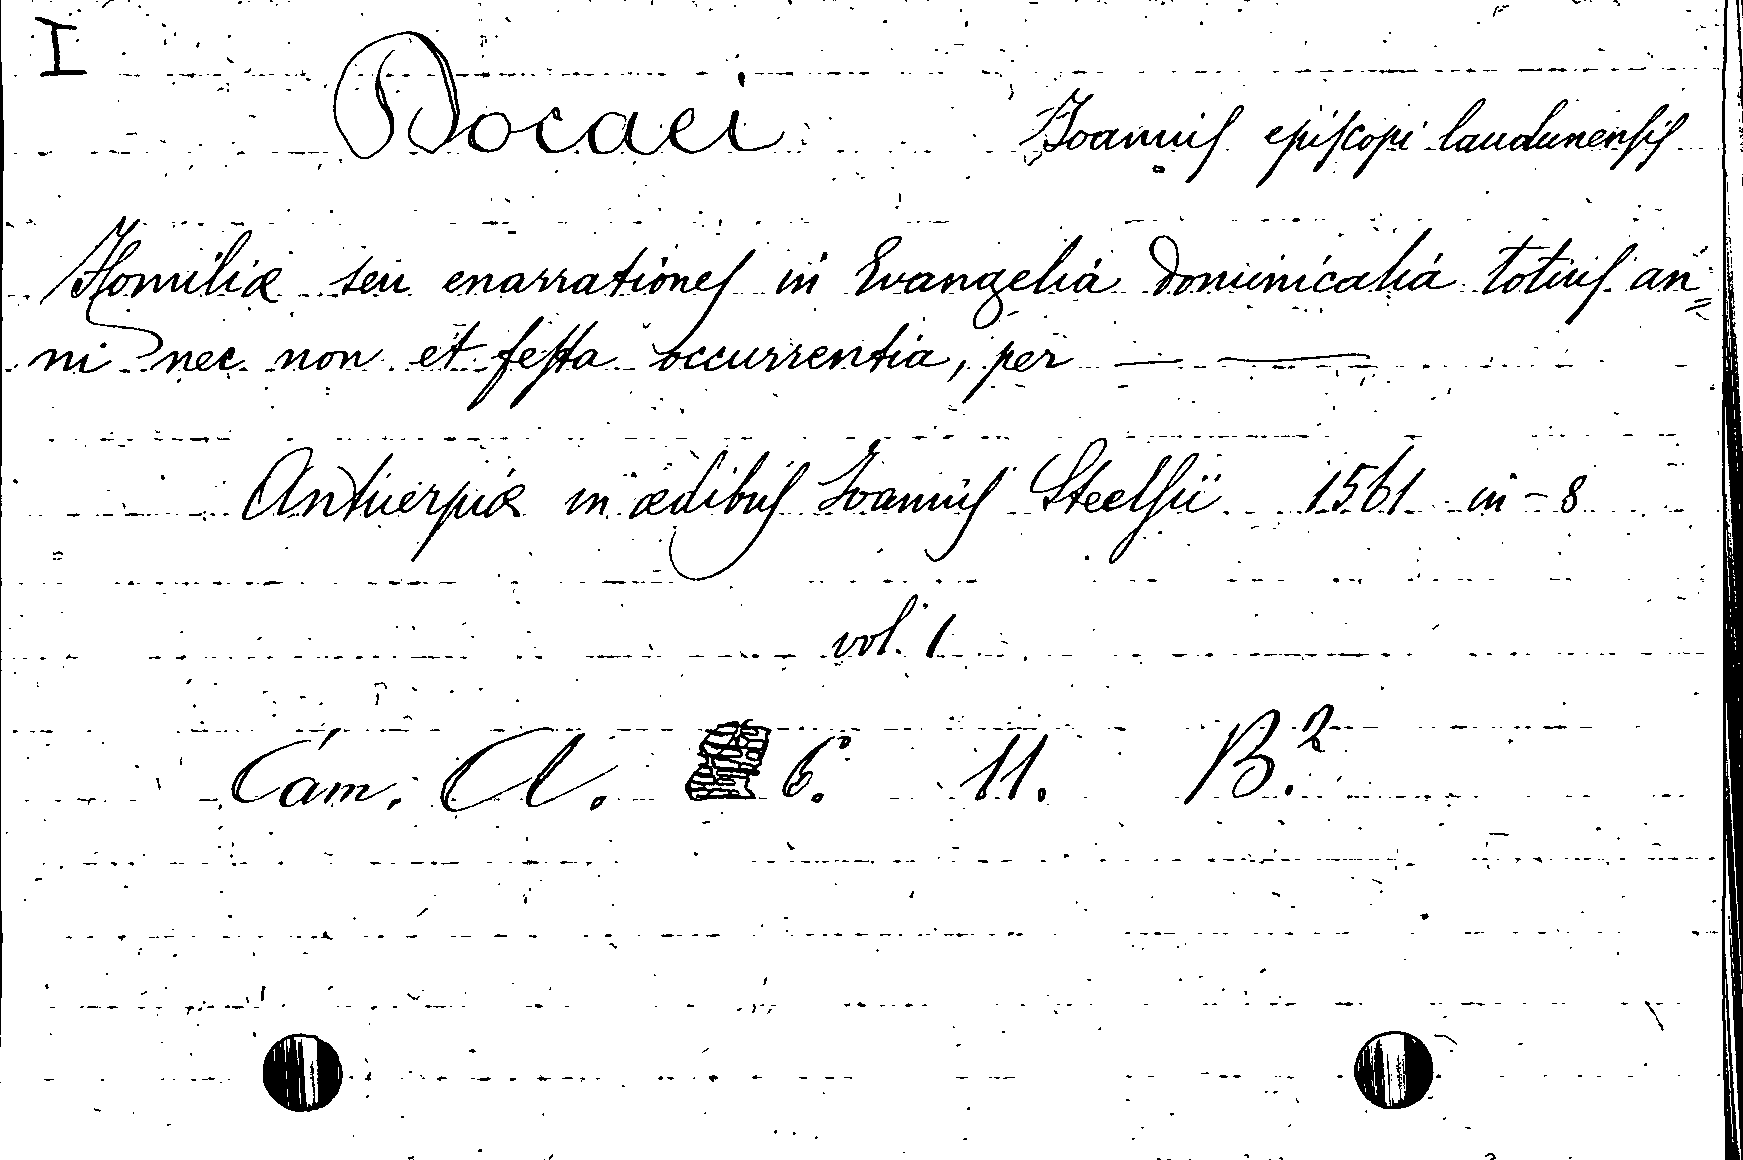 I
Docaei Joannis episcopi laudunensis
Homiliæ seu enarrationes in Evangelia dominicalia totius an=
ni nec non et festa occurrentia, per — —
Antuerpiæ in ædibus Joannis Steelsii 1561 in-8
vol. 1
Cam. A. 6. 11. B.2